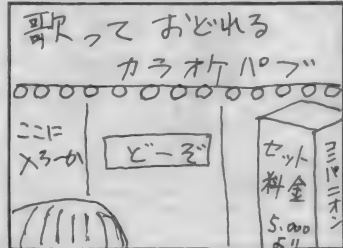 歌って おどれる
カラオケパブ
ここに
メろーか
どーぞ
セット
料金
5.000
より
コンパニオン